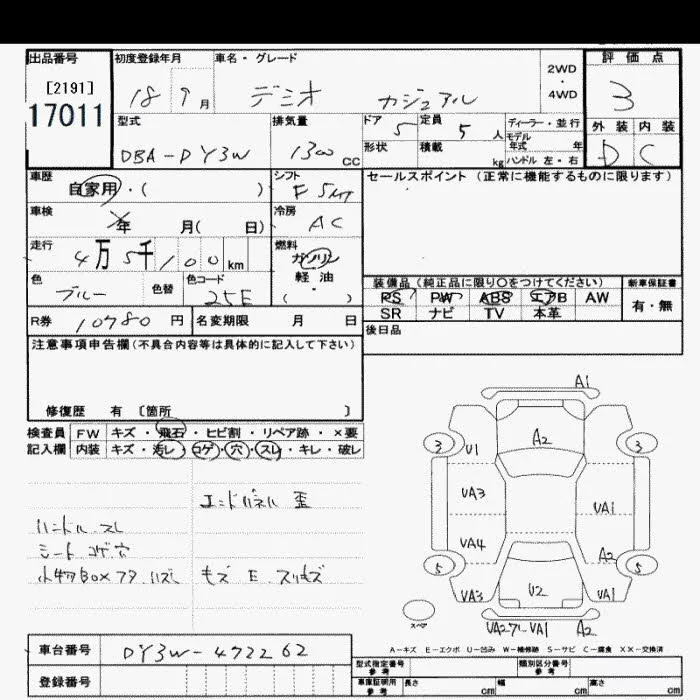 出品番号 初度登録年月 車名・グレード 評価点
[2191] 2WD
17011 18 9月 デミオ カジュアル ・ 3
4WD
型式 排気量 ドア 5 定員 5人 ディーラー・並行 外装 内装
DBA-DY3W 1300 CC 形状 積載 kg モデル年式 年 D C
ハンドル 左・右
車歴 自家用・( ) シフト F 5MT セールスポイント (正常に機能するものに限ります)
車検 年 月( 日) 冷房 AC
走行 4万5千100km 燃料 ガソリン
軽・油
( )
色 ブルー 色替 色コード 25E
装備品 (純正品に限り○をつけてください) 新車保証書
PS PW ABS エアB AW 有・無
SR ナビ TV 本革
R券 10780円 名変期限 月 日 後日品
注意事項申告欄(不具合内容等は具体的に記入して下さい)
修復歴 有 〔箇所 〕
検査員 FW キズ・飛石・ヒビ割・リペア跡・×要
記入欄 内装 キズ・汚レ・コゲ・穴・スレ・キレ・破レ
エンドパネル 歪
ハンドル スレ
シート コゲ穴
小物BOXフタ ハズレ モズ E スリキズ
A1
A2
3 3
U1
VA3 VA1
VA4 A2
5 5
VA3 U2 VA1
スペア VA27ﾚ-VA1 A2
A-キズ E-エクボ U-凹み W-補修跡 S-サビ C-腐食 XX-交換済
車台番号 DY3W-472262
登録番号
型式指定番号 参考 類別区分番号 参考
車庫証明用 参考 長さ cm 幅 cm 高さ cm